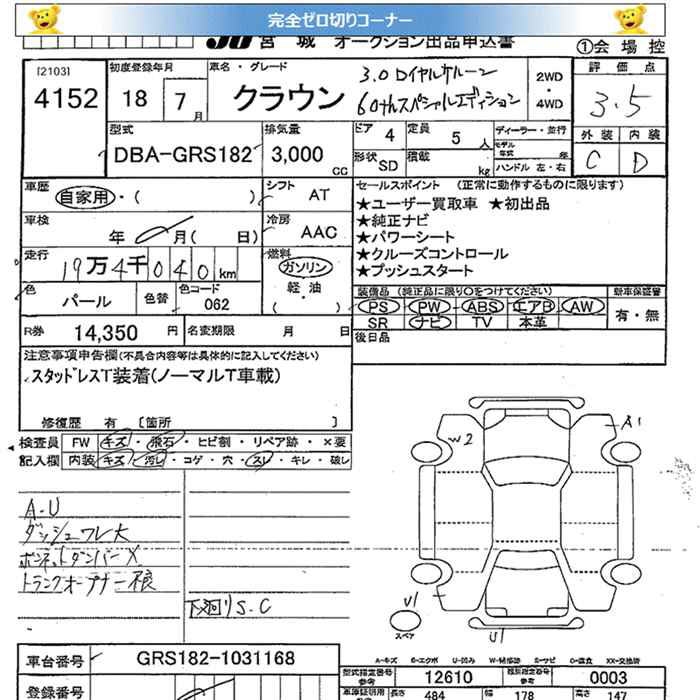 完全ゼロ切りコーナー
JU 宮 城 オークション出品申込書 ①会 場 控
[2103]
4152
初度登録年月
18 7月
車名・グレード
クラウン
3.0ロイヤルサルーン
60thスペシャルエディション
2WD
・
4WD
評 価 点
3.5
外装 内装
C D
型式
DBA-GRS182
排気量
3,000 CC
ドア 4
定員 5 人
形状 SD
積載 kg
ディーラー・並行
モデル年式 年
ハンドル 左・右
車歴
自家用・( )
シフト AT
車検
年 月( 日)
冷房 AAC
走行
19万4千040km
燃料
ガソリン
軽・油
( )
色 パール
色替
色コード
062
R券 14,350 円
名変期限 月 日
セールスポイント (正常に動作するものに限ります)
★ユーザー買取車 ★初出品
★純正ナビ
★パワーシート
★クルーズコントロール
★プッシュスタート
装備品(純正品に限り〇をつけてください)
PS PW ABS エアB AW
SR ナビ TV 本革
新車保証書
有・無
後日品
注意事項申告欄(不具合内容等は具体的に記入してください)
スタッドレスT装着(ノーマルT車載)
修復歴 有 〔箇所 〕
検査員 FW キズ・飛石・ヒビ割・リペア跡・×要
記入欄 内装 キズ・汚レ・コゲ・穴・スレ・キレ・破レ
A-U
ダッシュワレ大
ボンネットダンパーX
トランクオープナー不良
下廻りS.C
W2
A1
U1
U1
スペア
A-キズ E-エクボ U-凹み
車台番号 GRS182-1031168
型式指定番号
参考
12610
類別指定番号
参考
0003
登録番号
長さ 484 幅 178 高さ 147